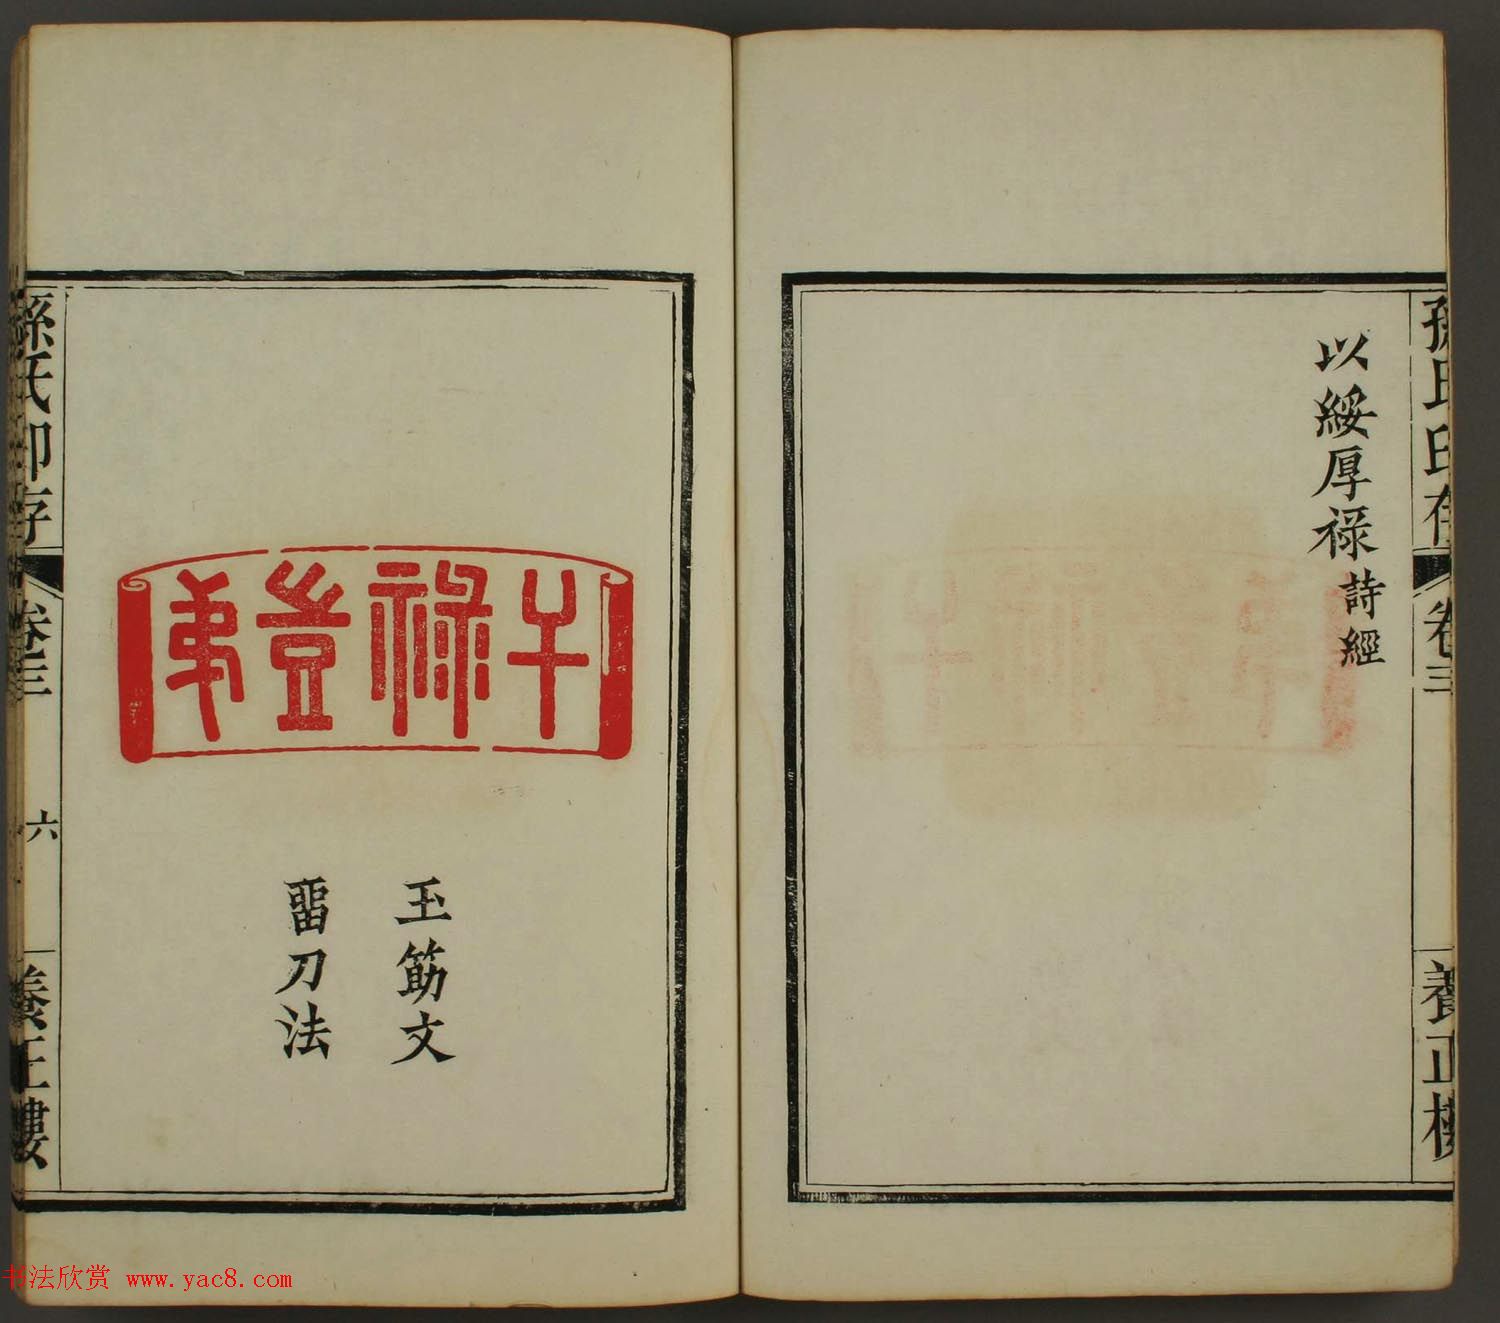 孫氏印存 卷三 養正樓
以綏厚祿 詩經
干祿豈弟
玉筯文
畱刀法
孫氏印存 卷三 六 養正樓
书法欣赏 www.yac8.com